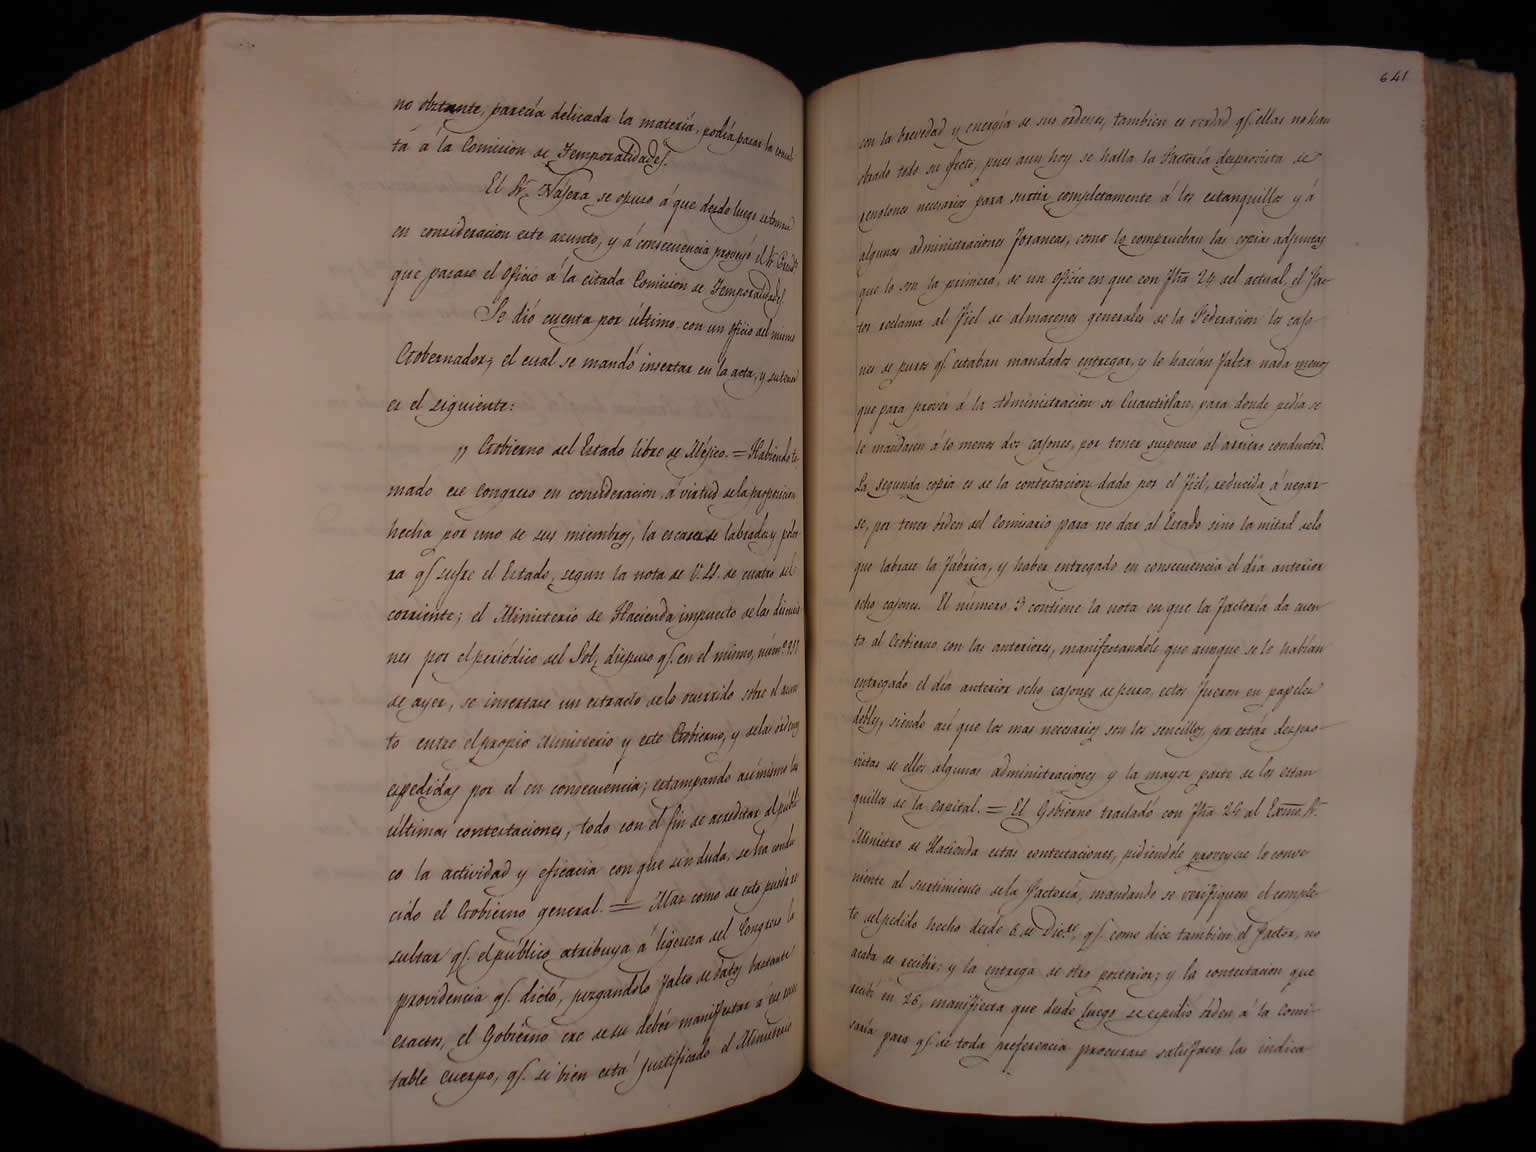 no obztante, parecía delicada la materia, podía pasar la consul-
ta á la Comision de Temporalidades.
El Sr. Nájera se opuso á que desde luego se tomase
en consideracion este asunto, y á consecuencia proveyó el Sr. Presidte.
que pasase el oficio á la citada Comision de Temporalidades.
Se dió cuenta por último con un oficio del mismo
Gobernador; el cual se mandó insertar en la acta, y su tenor
es el siguiente:
,, Gobierno del Estado libre de Méjico. = Habiendo to-
mado ese Congreso en consideracion, á virtud de la proposicion
hecha por uno de sus miembros, la escases de labrados y pólvo-
ra qe. sufre el Estado, segun la nota de V. SS. de cuatro del
corriente; el Ministerio de Hacienda impuesto de las discusio-
nes por el periódico del Sol, dispuso qe. en el mismo, núm.o
de ayer, se insertase un estracto de lo ocurrido sobre el asun-
to entre el propio Ministerio y este Gobierno, y de las órdenes
espedidas por el en consecuencia; estampando asimismo las
últimas contestaciones, todo con el fin de acreditar al públi-
co la actividad y eficacia con que sin duda, se ha condu-
cido el Gobierno general. = Mas como de esto pueda re-
sultar qe. el público atribuya á ligereza del Congreso la
providencia qe. dictó, juzgandolo falto de datos bastante
esactos, el Gobierno cre de su debér manifestar á ese respe-
table cuerpo, qe. si bien está justificado el Ministerio
641
con la brevedad y energía de sus ordenes, tambien es verdad qe. ellas no han
obrado todo su efecto, pues aun hoy se halla la Factoría desprovista de
renglones necesarios para surtir completamente á los estanquillos y á
algunas administraciones foraneas, como lo comprueban las copias adjuntas
que lo son la primera, de un oficio en que con fha 24 del actual, el Fac-
tor reclama al Fiel de almacenes generales de la Federacion los cajo-
nes de puros qe. estaban mandados entregar, y le hacían falta nada menos
que para proveer á la Administracion de Cuautitlan, para donde pedia se
le mandasen á lo menos dos cajones, por tener suspenso al arriero conductor.
La segunda copia es de la contestacion dada por el Fiel, reducida á negar-
se, por tener órden del Comisario para no dar al Estado sino la mitad de lo
que labrase la fábrica, y haber entregado en consecuencia el dia anterior
ocho cajones. El número 3 contiene la nota en que la Factoría da cuen-
ta al Gobierno con las anteriores, manifestandole que aunque se le habían
entregado el dia anterior ocho cajones de puros, estos fueron en papeles
dobles, siendo así que los mas necesarios son los sencillos, por estár despro-
vistas de ellos algunas administraciones y la mayor parte de los estan-
quillos de la capital. = El Gobierno trasladó con fha 24 al Exmo. Sr.
Ministro de Hacienda estas contestaciones, pidiendole proveyese lo conve-
niente al surtimiento de la Factoría, mandando se verifiquen el comple-
to del pedido hecho desde 6 de Dice., qe. como dice tambien el Factor, no
acaba de recibir; y la entrega de otro posterior; y la contestacion que
recibí en 26, manifiesta que desde luego se espidio órden á la Comi-
saría para qe. de toda preferencia procurase satisfacer las indica-